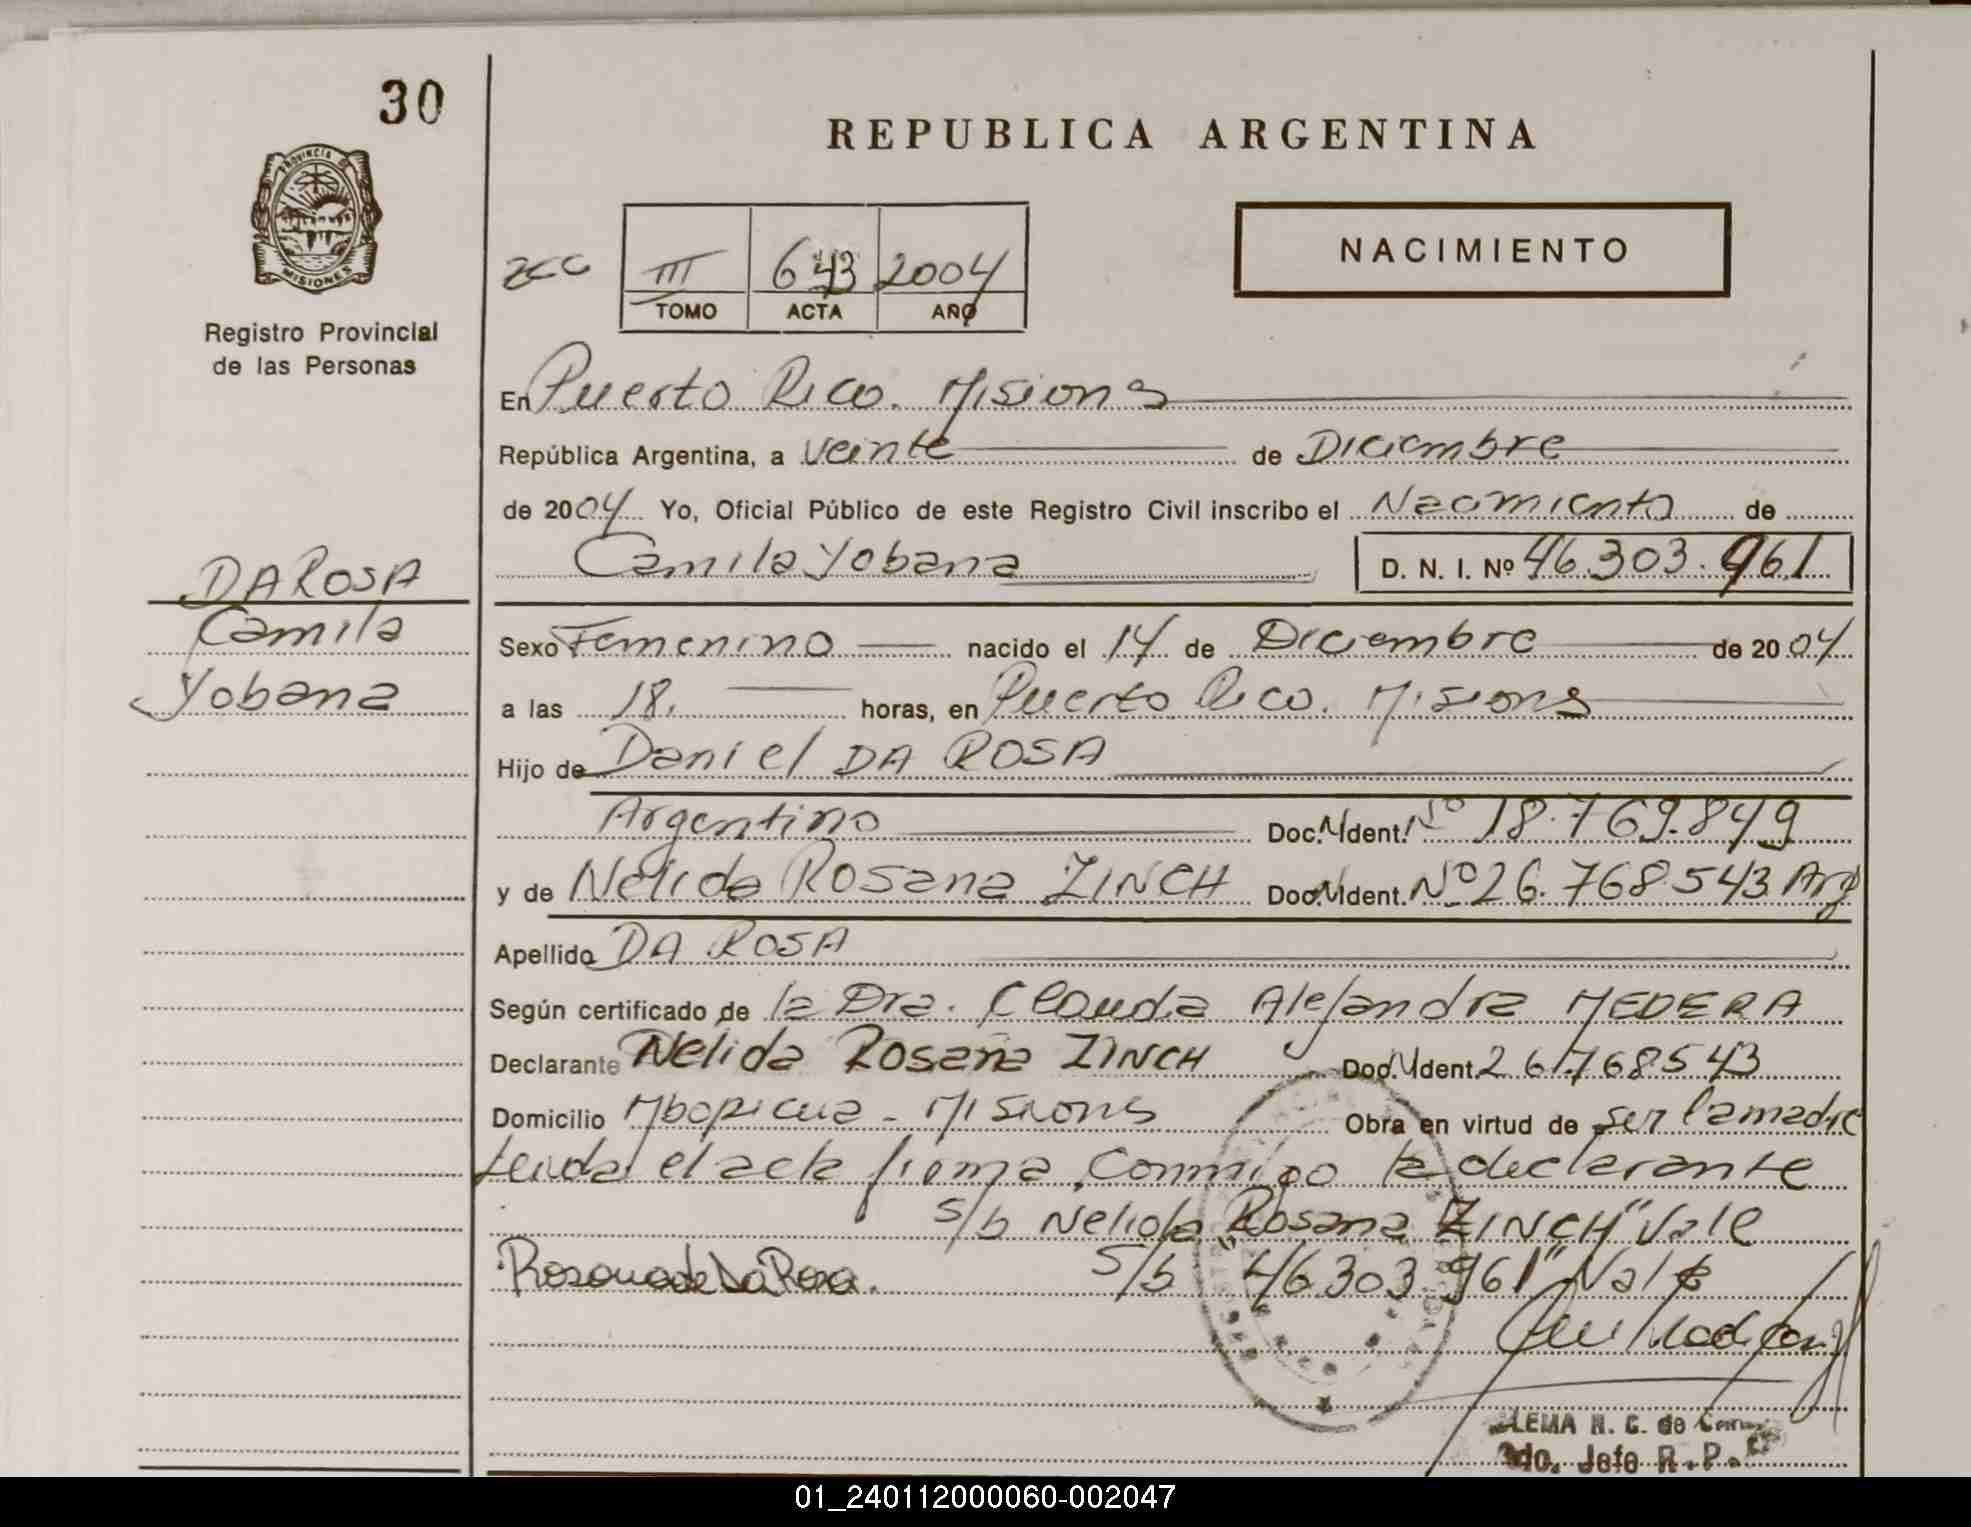 30
REPUBLICA ARGENTINA
PROVINCIA DE
MISIONES
Registro Provincial
de las Personas
III 643 2004
TOMO ACTA AÑO
NACIMIENTO
En Puerto Rico. Misiones
República Argentina, a veinte de Diciembre
de 2004 Yo, Oficial Público de este Registro Civil inscribo el Nacimiento de
Camila Yobana D. N. I. Nº 46.303.961
DA ROSA
Camila
Yobana
Sexo Femenino nacido el 14 de Diciembre de 2004
a las 18. horas, en Puerto Rico. Misiones
Hijo de Daniel DA ROSA
Argentino Doc. N. Ident. Nº 18.769.849
y de Nélida Rosana ZINCH Doc. N. Ident. Nº 26.768.543 Arg
Apellido DA ROSA
Según certificado de la Dra. Claudia Alejandra MEDERA
Declarante Nélida Rosana ZINCH Doc. N. Ident. 26.768543
Domicilio Mbopicua - Misiones Obra en virtud de ser la madre
Leida el acta firma conmigo la declarante
s/b Nelida "Rosana ZINCH" Vale
Rosana de Da Rosa. S/b "46303961" Vale
LEMA N. C. de
2do. Jefe R. P.
01_240112000060-002047